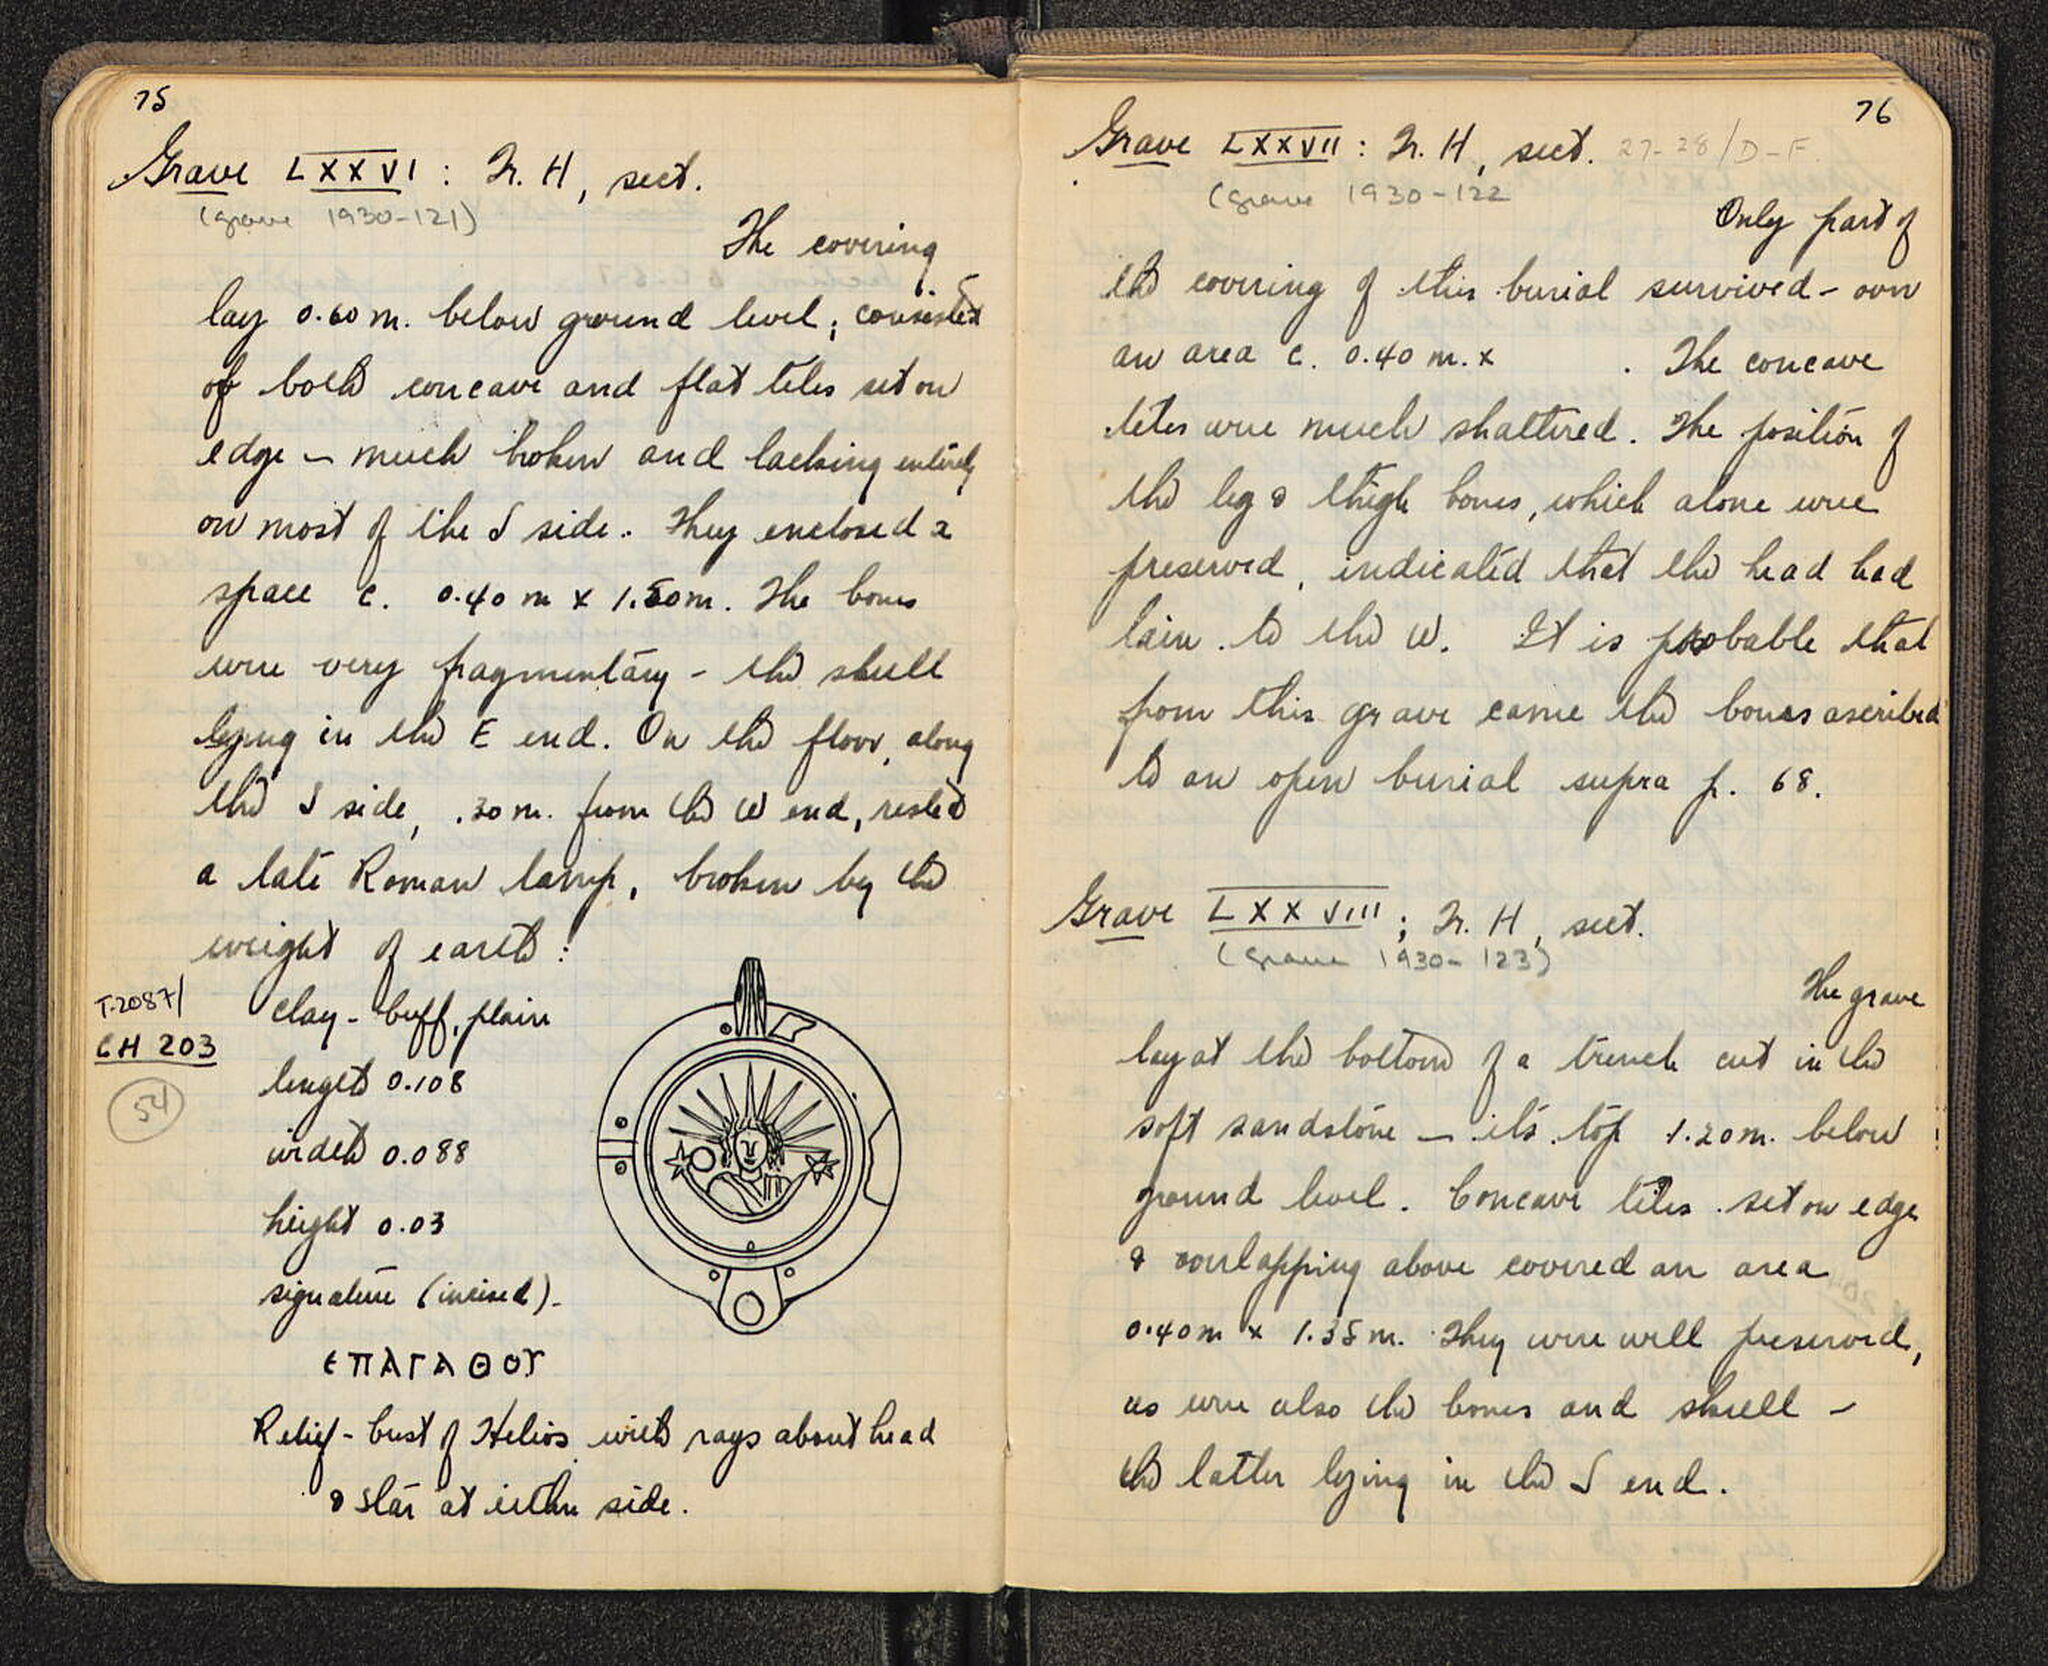 75
Grave LXXVI: Tr. H, sect.
(grave 1930-121)
The covering
lay 0.60 m. below ground level; consisted
of both concave and flat tiles set on
edge – much broken and lacking entirely
on most of the S side. They enclosed a
space c. 0.40 m x 1.50 m. The bones
were very fragmentary – the skull
lying in the E end. On the floor, along
the S side, .30 m. from the W end, rested
a late Roman lamp, broken by the
weight of earth:
T-2087/
CH 203
54
clay – buff, plain
length 0.108
width 0.088
height 0.03
signature (incised) –
ЄΠΑΓΑΘΟΥ
Relief – bust of Helios with rays about head
& star at either side.
76
Grave LXXVII: Tr. H, sect. 27-28/D-F
(grave 1930-122
Only part of
the covering of this burial survived – over
an area c. 0.40 m. x . The concave
tiles were much shattered. The position of
the leg & thigh bones, which alone were
preserved, indicated that the head had
lain to the W. It is probable that
from this grave came the bones ascribed
to an open burial supra p. 68.
Grave LXXVIII; Tr. H, sect.
(grave 1930-123)
The grave
lay at the bottom of a trench cut in the
soft sandstone – its top 1.20 m. below
ground level. Concave tiles set on edge
& overlapping above covered an area
0.40 m x 1.35 m. They were well preserved,
as were also the bones and skull –
the latter lying in the S end.